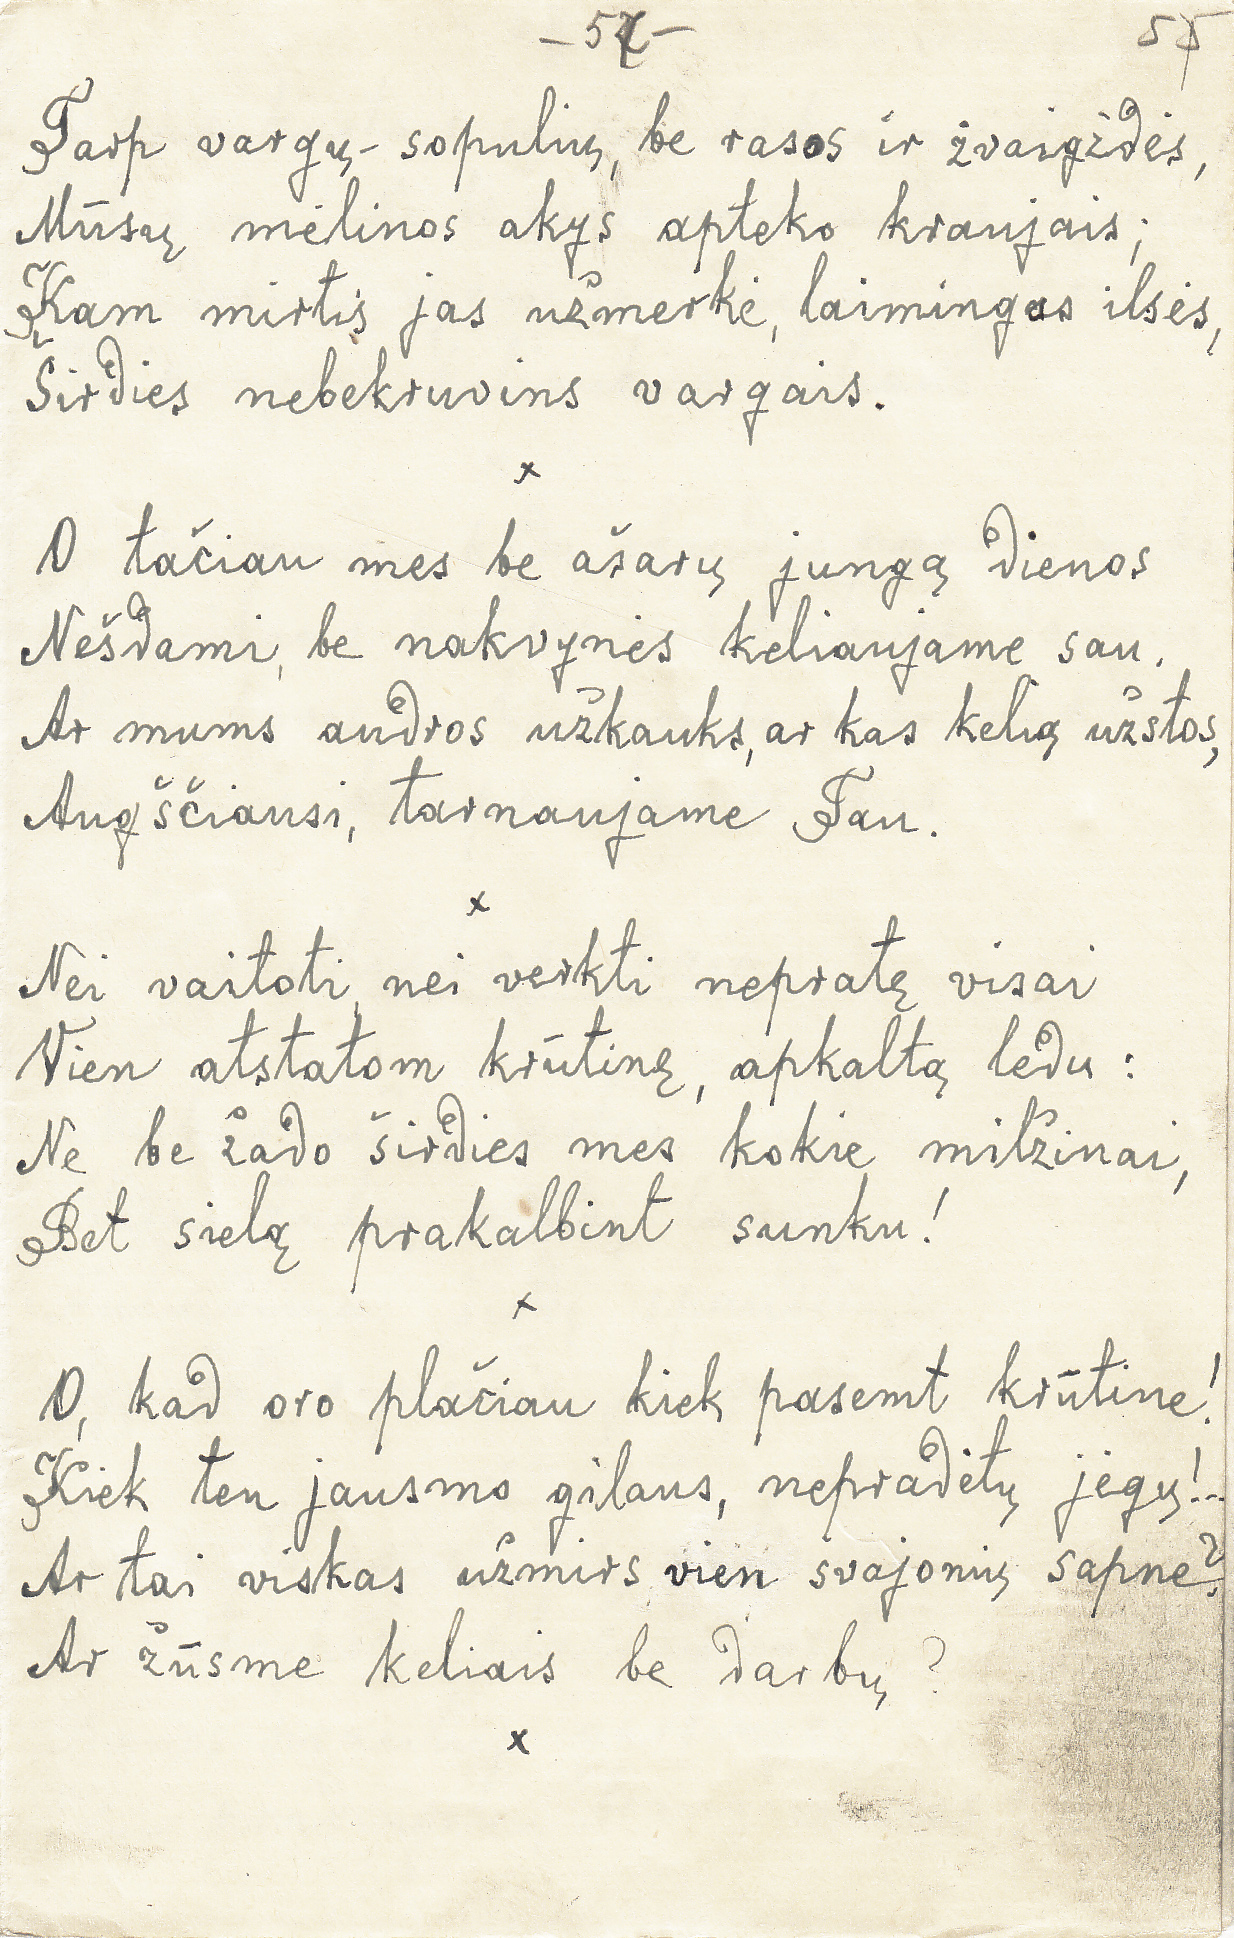 Tarp vargų-sopulių, be rasos ir žvaigždės,
Mūsų mėlinos akys apteko kraujais;
Kam mirtis jas užmerkė, laimingas ilsės,
Širdies nebekruvins vargais.
x
O tačiau mes be ašarų jungą dienos
Nešdami, be nakvynės keliaujame sau.
Ar mums audros užkauks, ar kas kelią užstos,
Augščiausi, tarnaujame Tau.
x
Nei vaitoti, nei verkti nepratę visai
Vien atstatom krūtinę, apkaltą ledu:
Ne be žado širdies mes kokie milžinai,
Bet sielą prakalbint sunku!
x
O, kad oro plačiau kiek pasemt krūtine!
Kiek ten jausmo gilaus, nepradėtų jėgų!..
Ar tai viskas užmirs vien svajonių sapne?
Ar žūsme keliais be darbų?
x